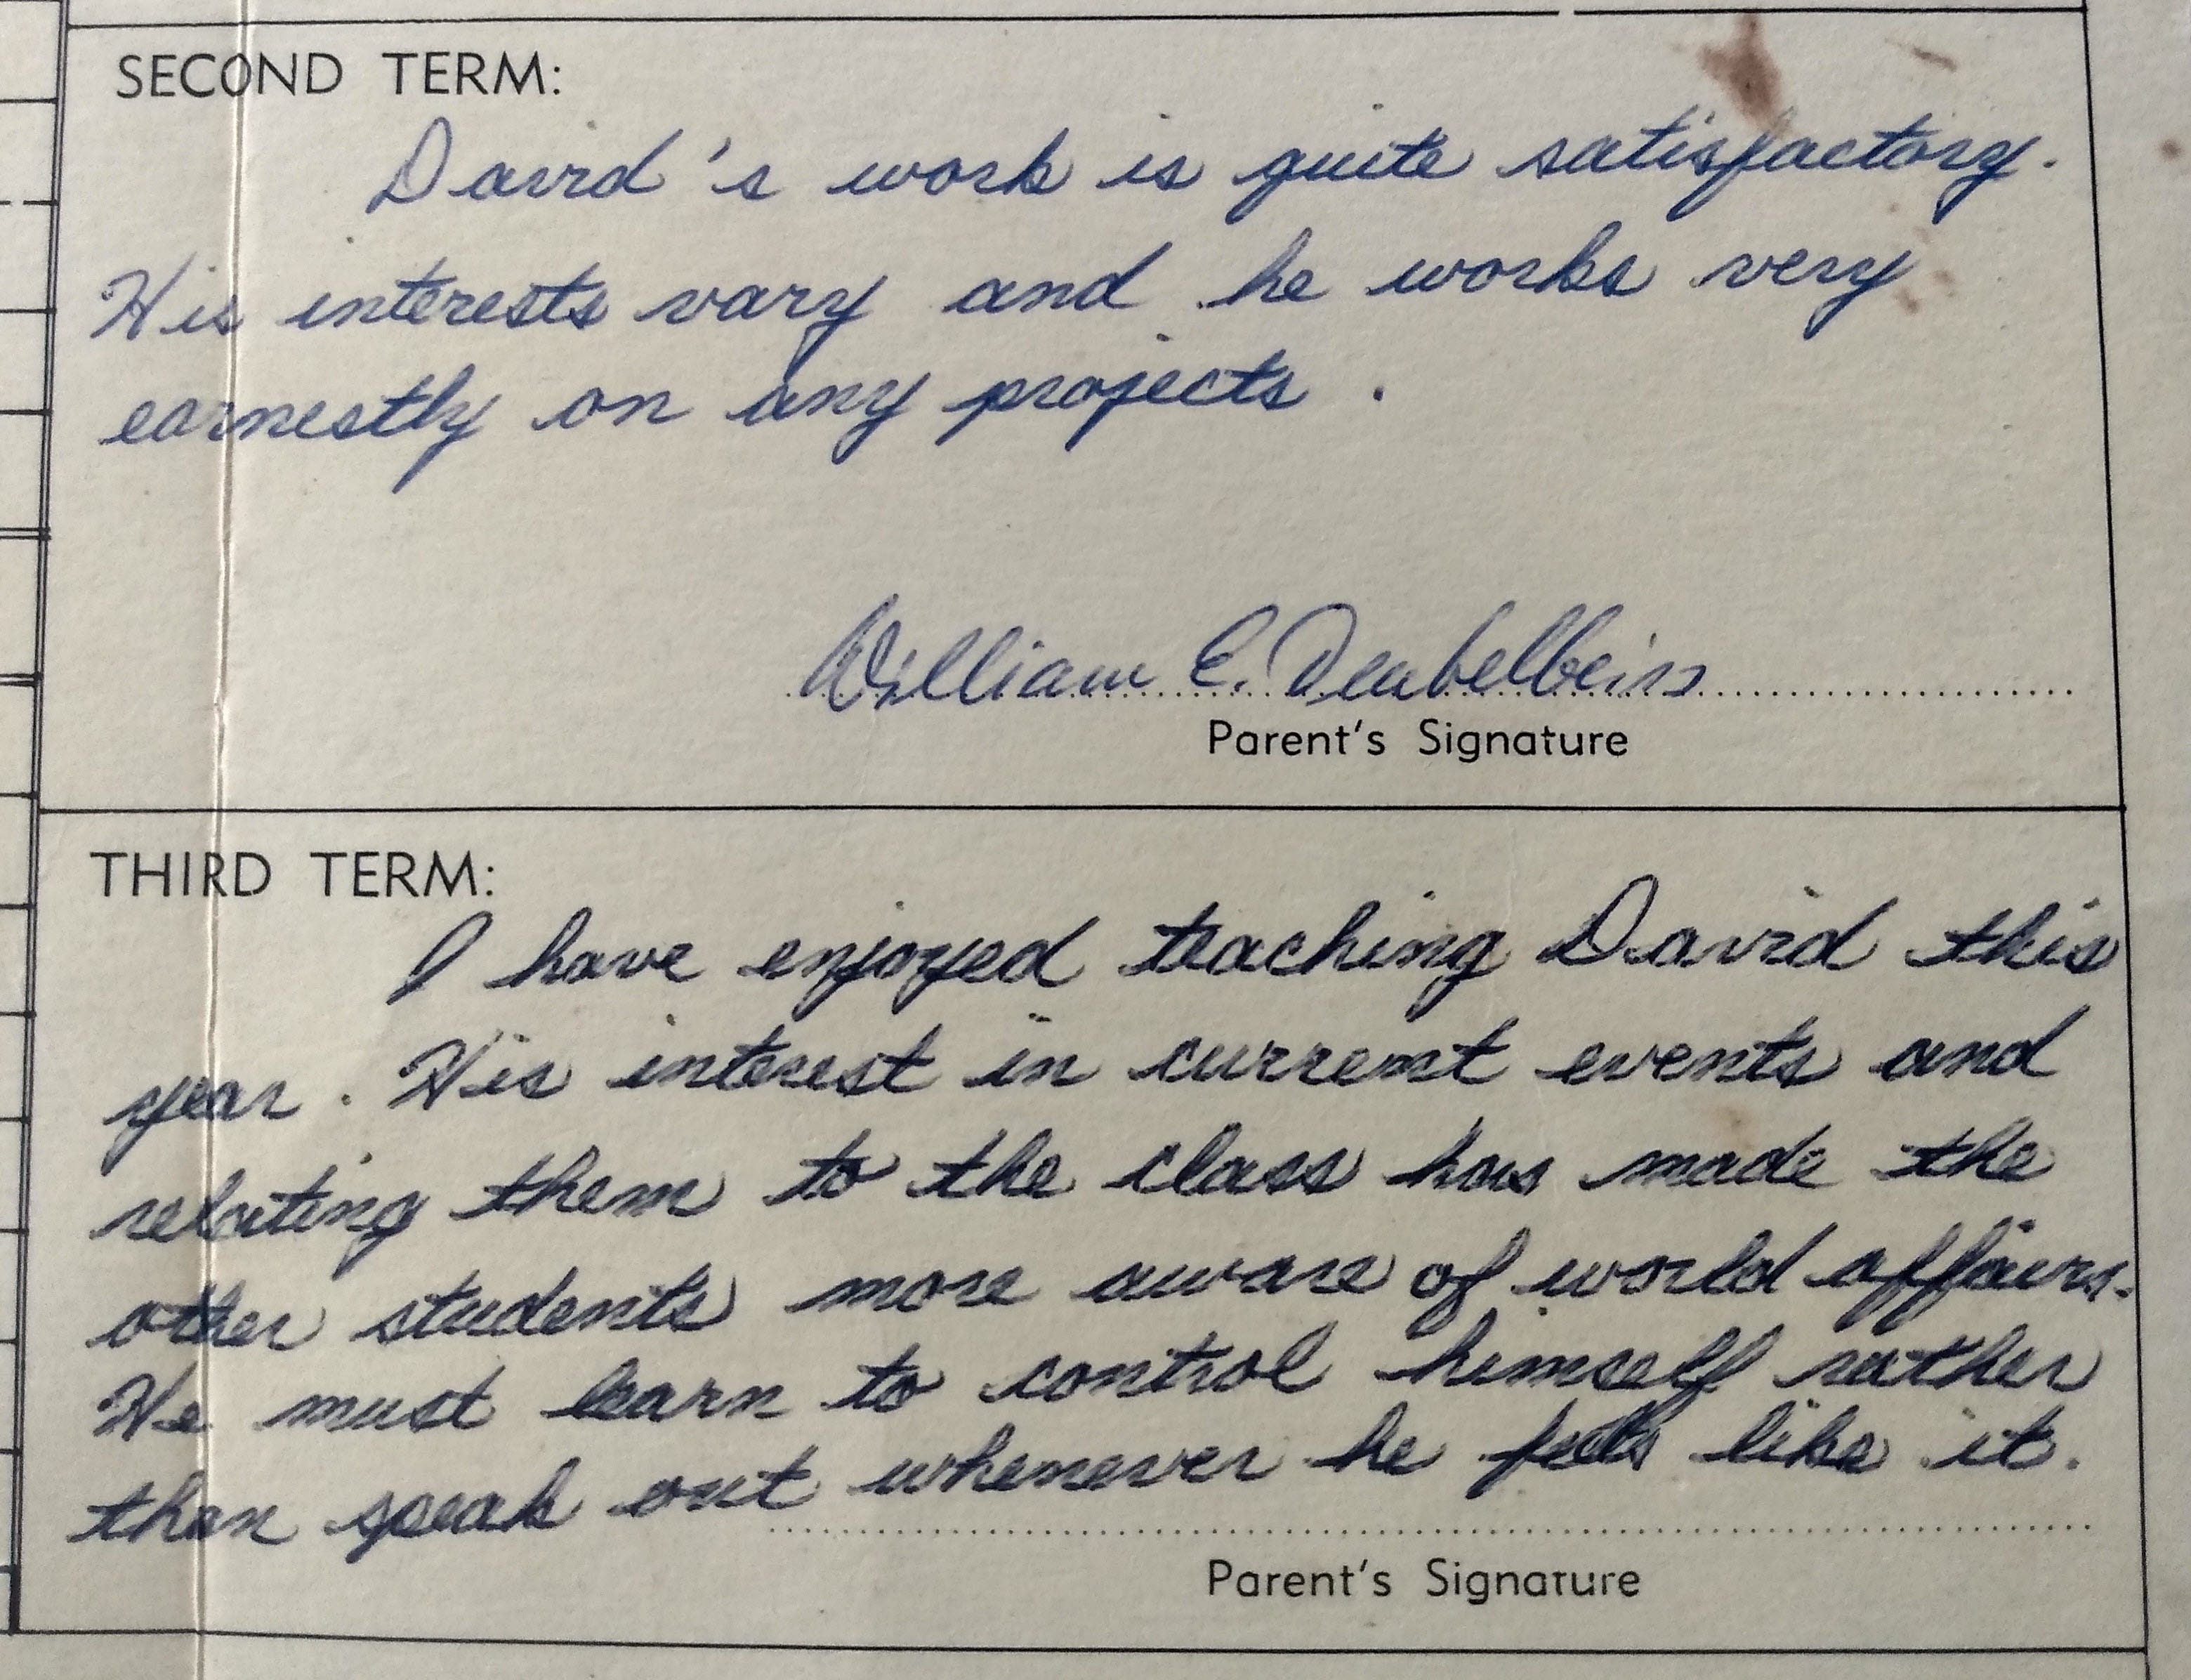 SECOND TERM:
David's work is quite satisfactory.
His interests vary and he works very
earnestly on any projects.
William E. Deubelbeiss
Parent's Signature
THIRD TERM:
I have enjoyed teaching David this
year. His interest in current events and
relating them to the class has made the
other students more aware of world affairs.
He must learn to control himself rather
than speak out whenever he feels like it.
Parent's Signature